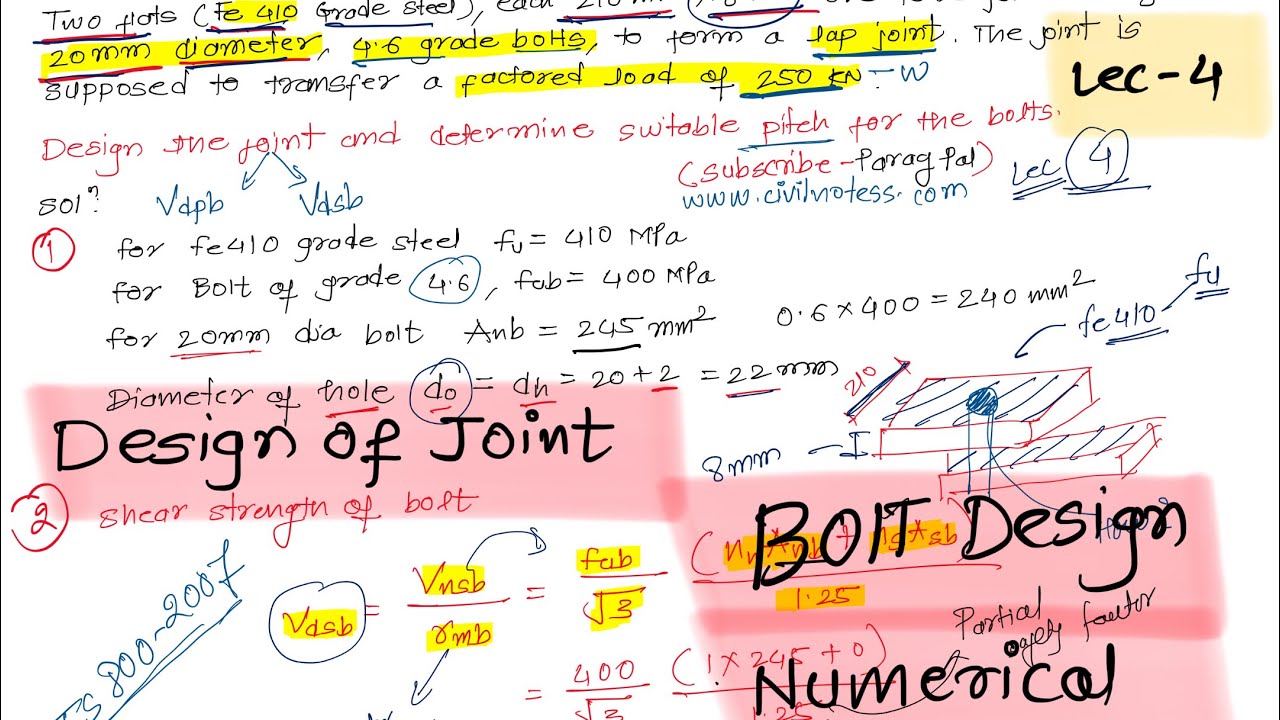 Two flats (Fe 410 Grade steel), each 210
20mm diameter, 4.6 grade bolts, to form a lap joint. The joint is
supposed to transfer a factored load of 250 KN - W
Lec-4
Design the joint and determine suitable pitch for the bolts.
(subscribe - Parag Pal)
www.civilnotess.com
Lec 4
Sol?
Vdpb
Vdsb
1
for fe410 grade steel fu = 410 MPa
for Bolt of grade 4.6, fub = 400 MPa
for 20mm dia bolt Anb = 245 mm²
0.6 × 400 = 240 mm²
Diameter of hole do = dh = 20 + 2 = 22 mm
fe 410
fu
210
8mm
Design of Joint
2
shear strength of bolt
BOlT Design
IS 800-2007
Vdsb = Vnsb / rmb = fub / √3 (nn*Anb + ns*Asb) / 1.25
Partial
factor
= 400 / √3 (1 × 245 + 0) / 1.25
Numerical